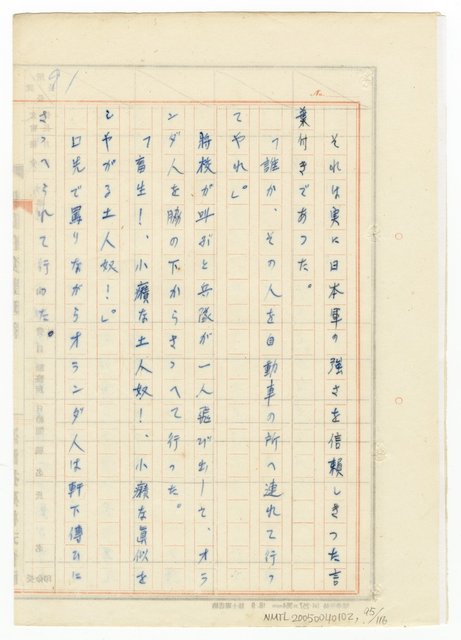 それは実に日本軍の強さを信頼しきつた言
葉付きであつた。
「誰か、その人を自動車の所へ連れて行つ
てやれ」。
将校が叫ぶと兵隊が一人飛び出して、オラ
ンダ人を脇の下からさゝへて行つた。
「畜生!、小癪な土人奴!、小癪な眞似を
しやがる土人奴!」。
口先で罵りながらオランダ人は軒下傳ひに
さゝへられて行つた。
91
No.
NMTL20050040102, 95/116